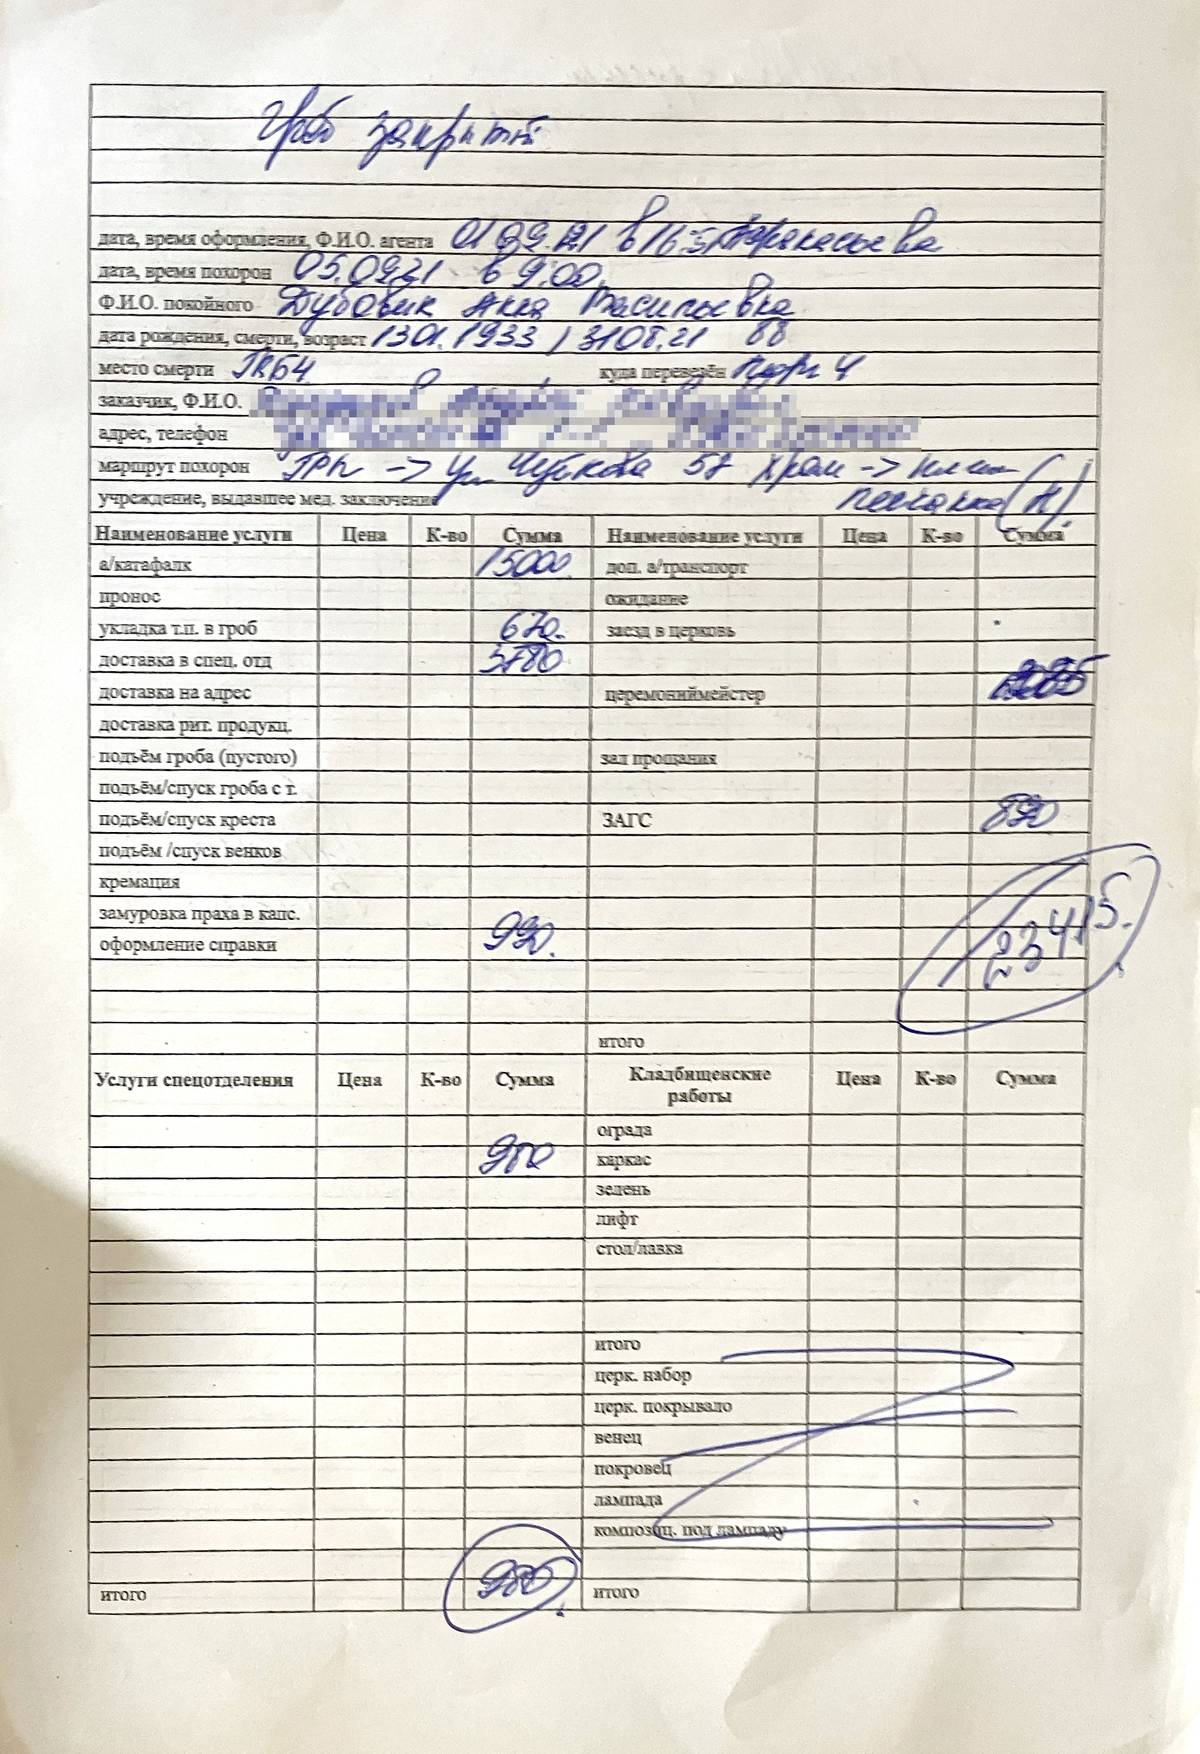 Гроб закрыт
дата, время оформления, Ф.И.О. агента 01.09.21 в 16
дата, время похорон 05.09.21 в 9.00.
Ф.И.О. покойного Дубовик Анна Васильевна
дата рождения, смерти, возраст 13.01.1933 / 31.08.21 88
место смерти ГКБ4 куда перевезён
заказчик, Ф.И.О.
адрес, телефон
маршрут похорон -> ул. 57 Храм ->
учреждение, выдавшее мед. заключение
Наименование услуги Цена К-во Сумма Наименование услуги Цена К-во Сумма
а/катафалк 15000 доп. а/транспорт
пронос ожидание
укладка т.п. в гроб 670. заезд в церковь
доставка в спец. отд 3780
доставка на адрес церемониймейстер
доставка рит. продукц.
подъём гроба (пустого) зал прощания
подъём/спуск гроба с т.
подъём/спуск креста ЗАГС 890
подъём /спуск венков
кремация
замуровка праха в капс.
оформление справки 990. 23415.
итого
Услуги спецотделения Цена К-во Сумма Кладбищенские работы Цена К-во Сумма
ограда
980 каркас
зелень
лифт
стол/лавка
итого
церк. набор
церк. покрывало
венец
покровец
лампада
композиц. под лампаду
итого 980 итого